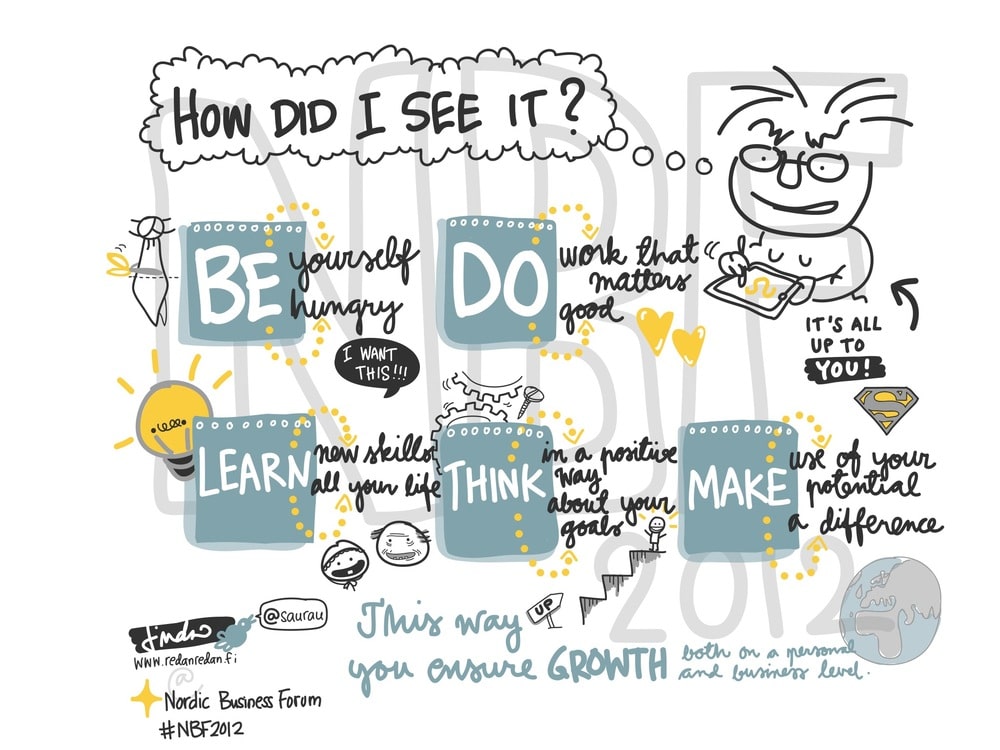 HOW DID I SEE IT?
BE yourself
hungry
I WANT
THIS!!!
DO work that
matters
good
IT'S ALL
UP TO
YOU!
LEARN new skills
all your life
THINK in a positive
way
about your
goals
MAKE use of your
potential
a difference
UP
This way
you ensure GROWTH both on a personal
and business level.
@saurau
www.redanredan.fi
@
Nordic Business Forum
#NBF2012
NBF
2012
S